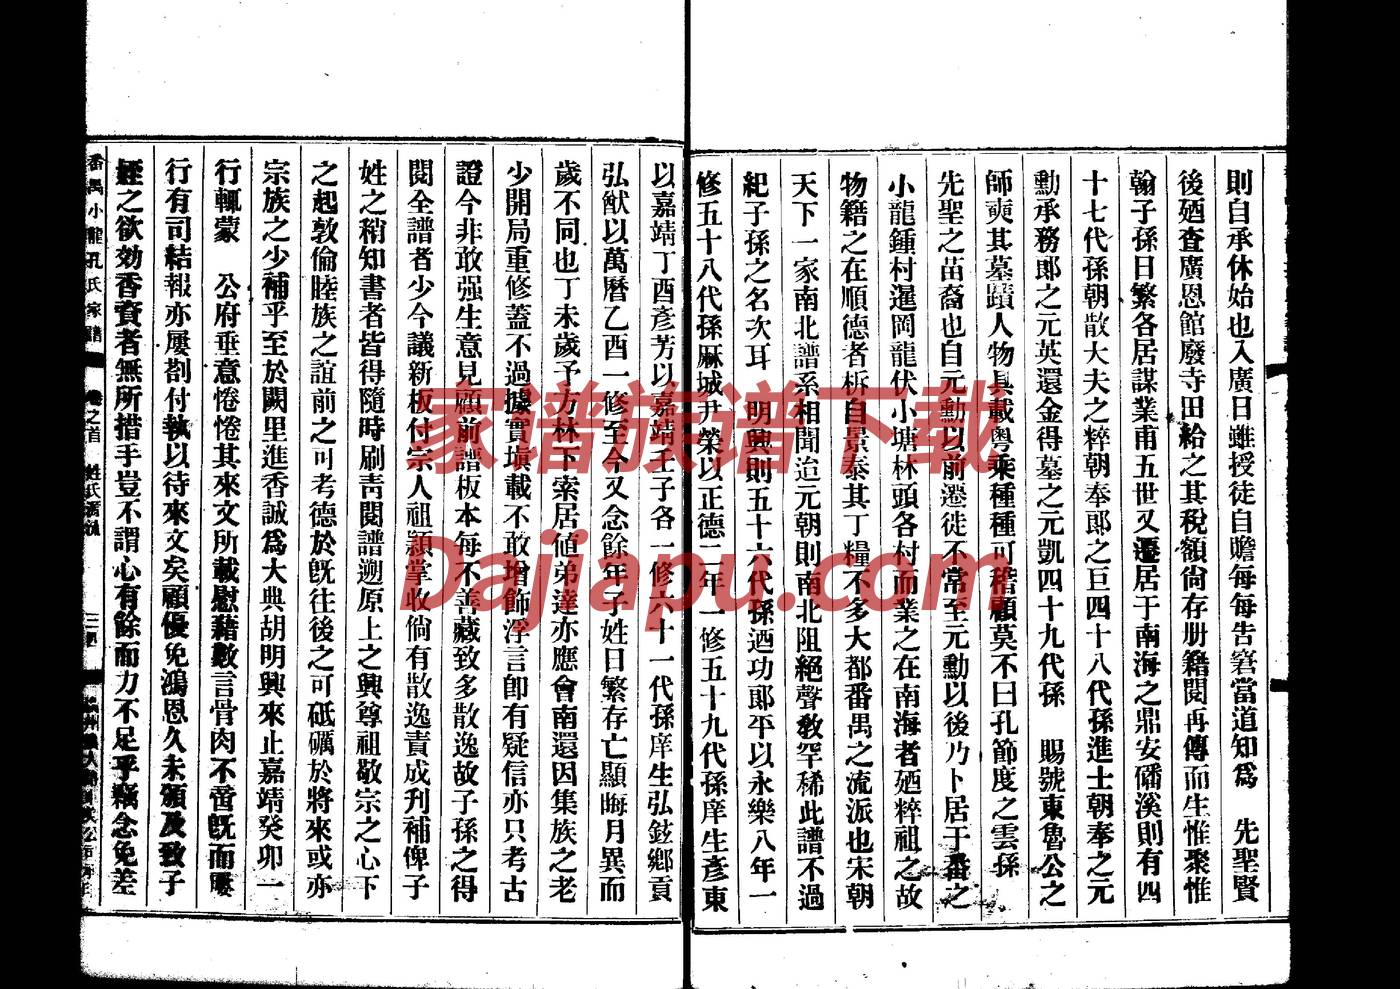 則自承休始也入廣日雖授徒自贍每每告窘當道知爲　先聖賢
後廼查廣恩館廢寺田給之其稅額尙存册籍閱再傳而生惟聚惟
翰子孫日繁各居謀業甫五世又遷居于南海之鼎安磻溪則有四
十七代孫朝散大夫之粹朝奉郎之巨四十八代孫進士朝奉之元
勳承務郎之元英還金得墓之元凱四十九代孫　賜號東魯公之
師奭其墓蹟人物具載粵乘種種可稽顧莫不曰孔節度之雲孫
先聖之苗裔也自元勳以前遷徙不常至元勳以後乃卜居于番之
小龍鍾村暹岡龍伏小塘林頭各村而業之在南海者廼粹祖之故
物籍之在順德者柝自景泰其丁糧不多大都番禺之流派也宋朝
天下一家南北譜系相聞迨元朝則南北阻絕聲敎罕稀此譜不過
紀子孫之名次耳　明興則五十六代孫迺功郎平以永樂八年一
修五十八代孫麻城尹榮以正德二年一修五十九代孫庠生彥東
以嘉靖丁酉彥芳以嘉靖壬子各一修六十一代孫庠生弘鉉鄉貢
弘猷以萬曆乙酉一修至今又念餘年子姓日繁存亡顯晦月異而
歲不同也丁未歲予方林下索居値弟達亦應會南還因集族之老
少開局重修蓋不過據實塡載不敢增飾浮言卽有疑信亦只考古
證今非敢强生意見顧前譜板本每不善藏致多散逸故子孫之得
閱全譜者少今議新板付宗人祖穎掌收倘有散逸責成刋補俾子
姓之稍知書者皆得隨時刷靑閱譜遡原上之興尊祖敬宗之心下
之起敦倫睦族之誼前之可考德於旣往後之可砥礪於將來或亦
宗族之少補乎至於闕里進香誠爲大典胡明興來止嘉靖癸卯一
行輒蒙　公府垂意惓惓其來文所載慰藉數言骨肉不啻旣而屢
行有司結報亦屢劄付執以待來文矣顧優免鴻恩久未頒及致子
姪之欲効香賫者無所措手豈不謂心有餘而力不足乎竊念免差
番禺小龍孔氏家譜　卷之首　姓氏源流